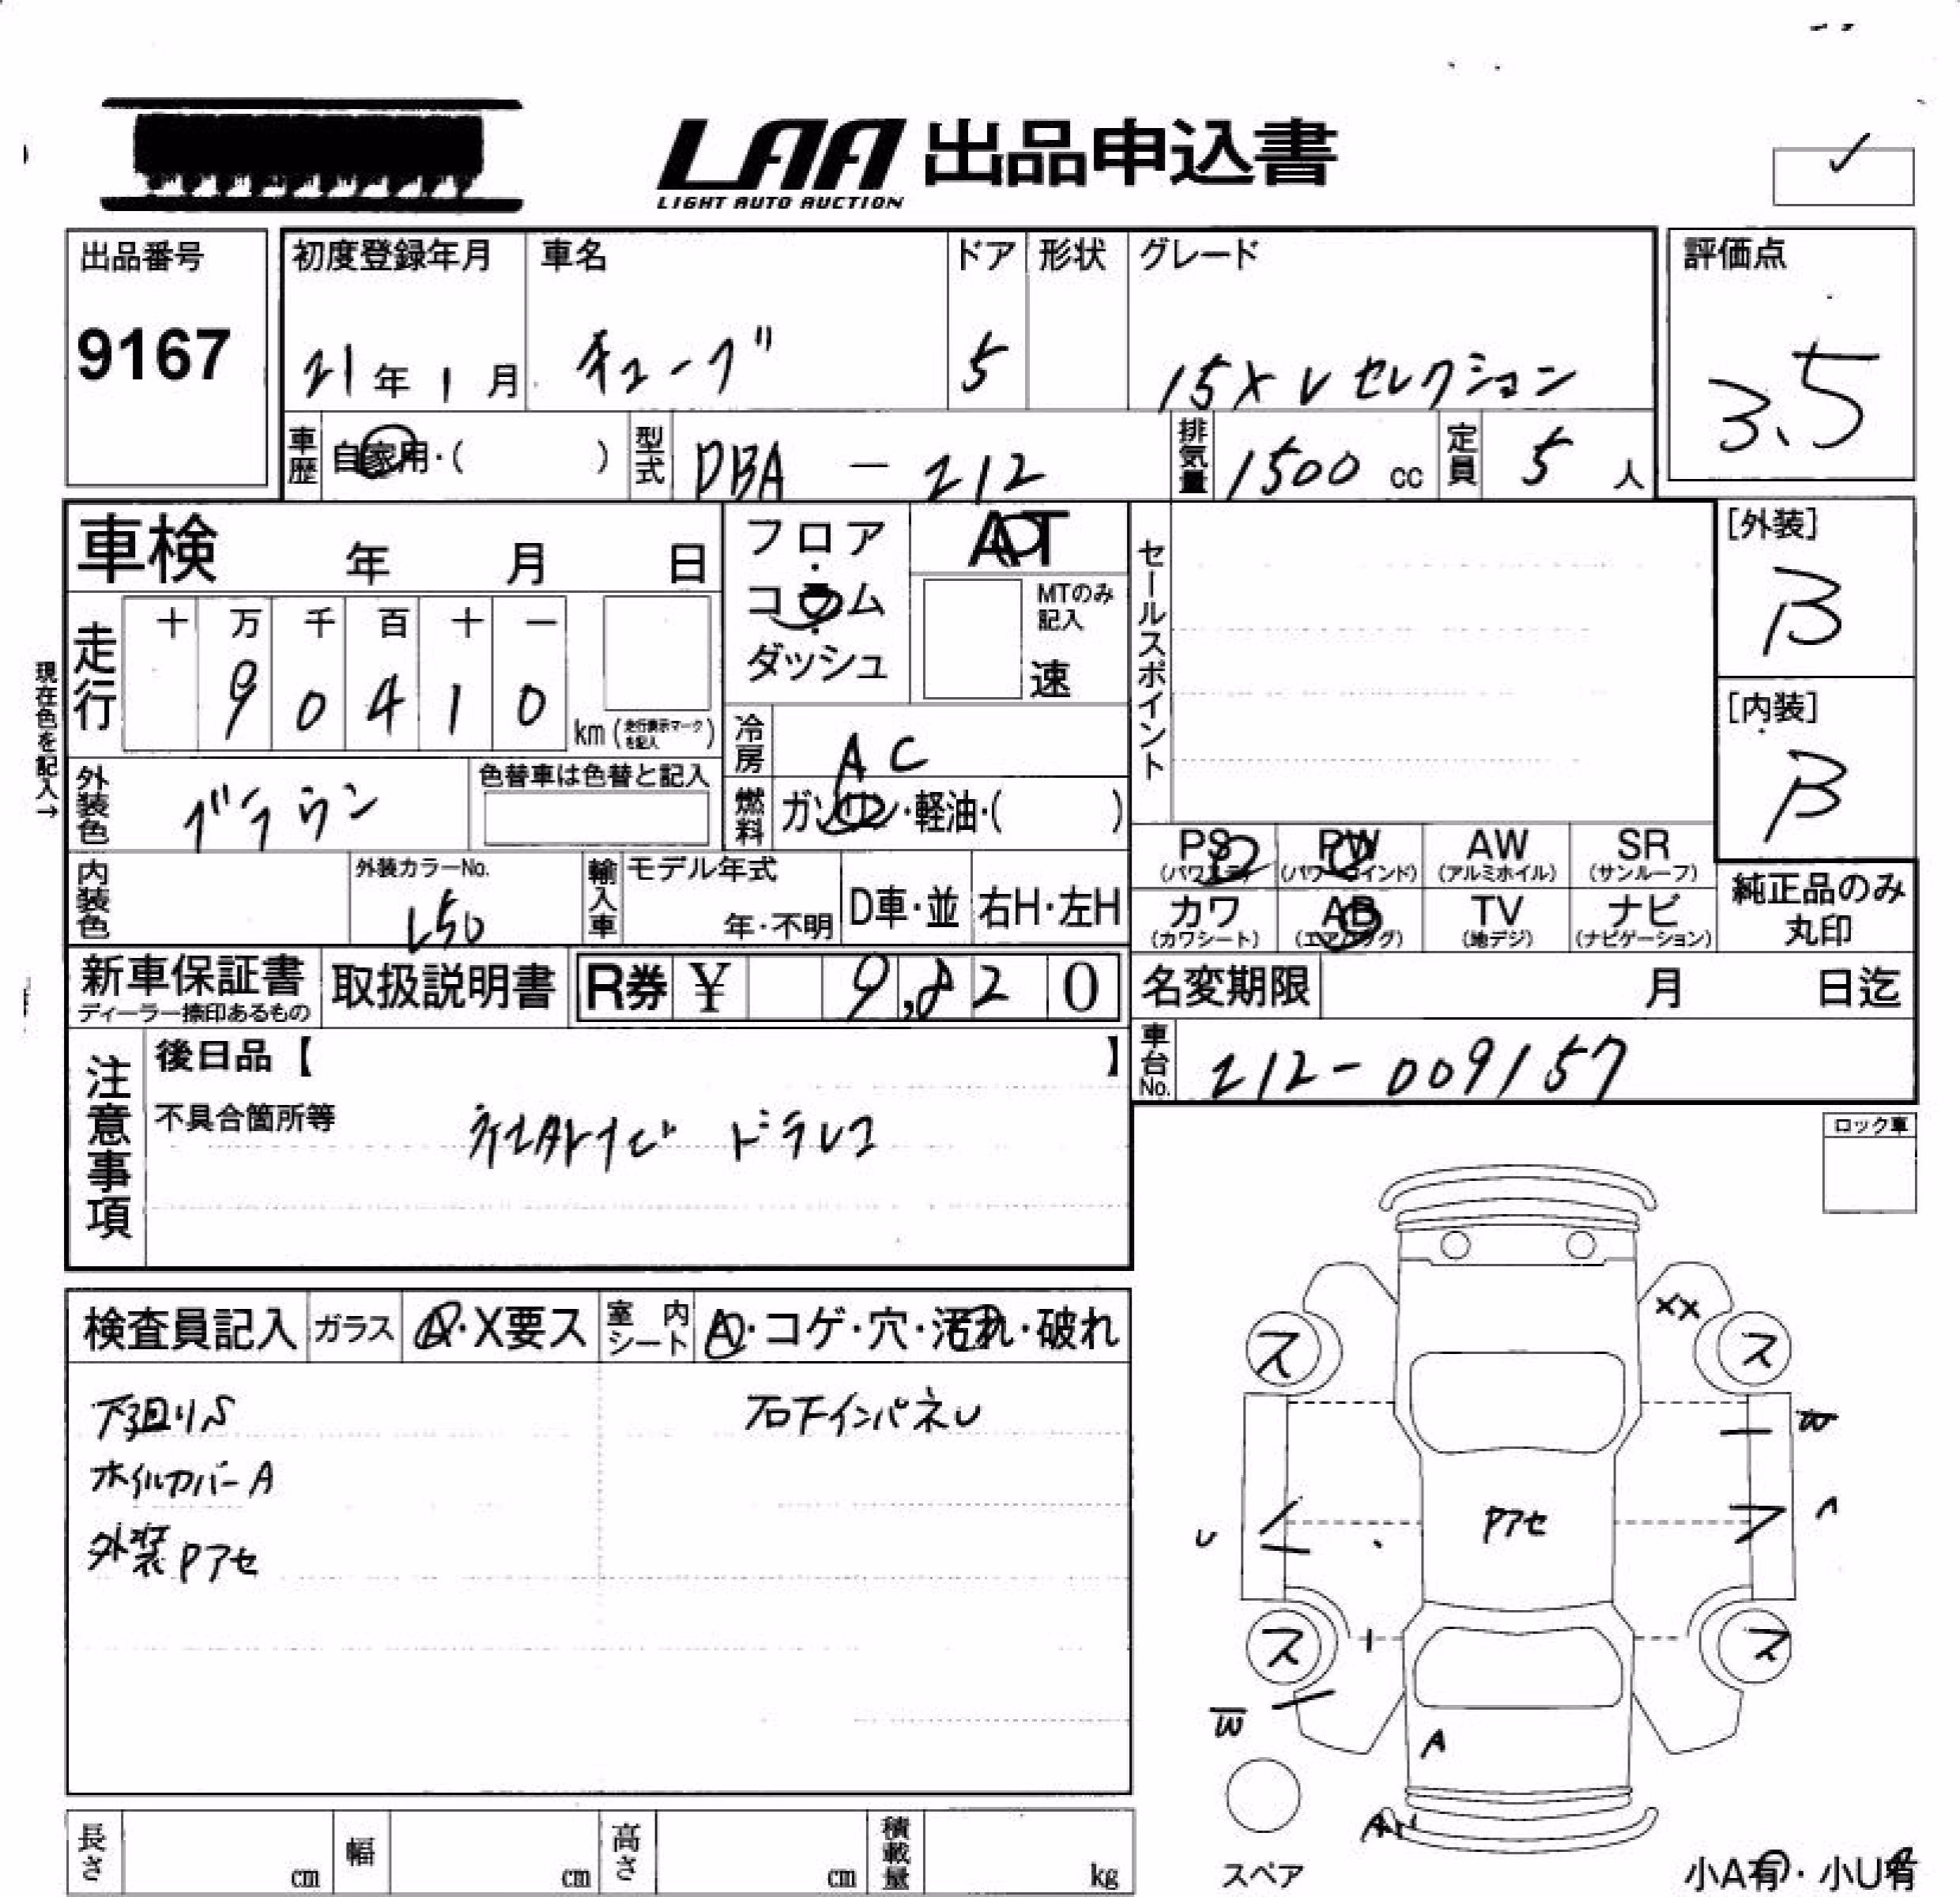 LAA 出品申込書
LIGHT AUTO AUCTION
出品番号 初度登録年月 車名 ドア 形状 グレード 評価点
9167 21年1月 キューブ 5 15X Vセレクション 3.5
車歴 自家用・( ) 型式 DBA - Z12 排気量 1500 cc 定員 5 人
車検 年 月 日 フロア・コラム・ダッシュ AT セールスポイント [外装]
B
MTのみ記入
速
走行 十 万 千 百 十 一
9 0 4 1 0 km (走行表示マークを記入)
現在色を記入→
[内装]
B
冷房 AC
外装色 ブラウン 色替車は色替と記入 燃料 ガソリン・軽油・( )
PS PW AW SR
(パワステ) (パワーウインド) (アルミホイル) (サンルーフ)
内装色 外装カラーNo. L50 輸入車 モデル年式 年・不明 D車・並 右H・左H
カワ AB TV ナビ 純正品のみ丸印
(カワシート) (エアバッグ) (地デジ) (ナビゲーション)
新車保証書 取扱説明書 R券 ¥ 9,820 名変期限 月 日迄
ディーラー捺印あるもの
車台No. Z12-009157
注意事項 後日品【 】
不具合箇所等 社外ナビ ドラレコ
ロック車
検査員記入 ガラス A・X要ス 室内シート A・コゲ・穴・汚れ・破れ
下廻りS 右下インパネU
ホイルカバーA
外装Pアセ
XX
ス ス
W
U Pアセ A
ス ス
W
A
スペア
小A有・小U有
長さ cm 幅 cm 高さ cm 積載量 kg